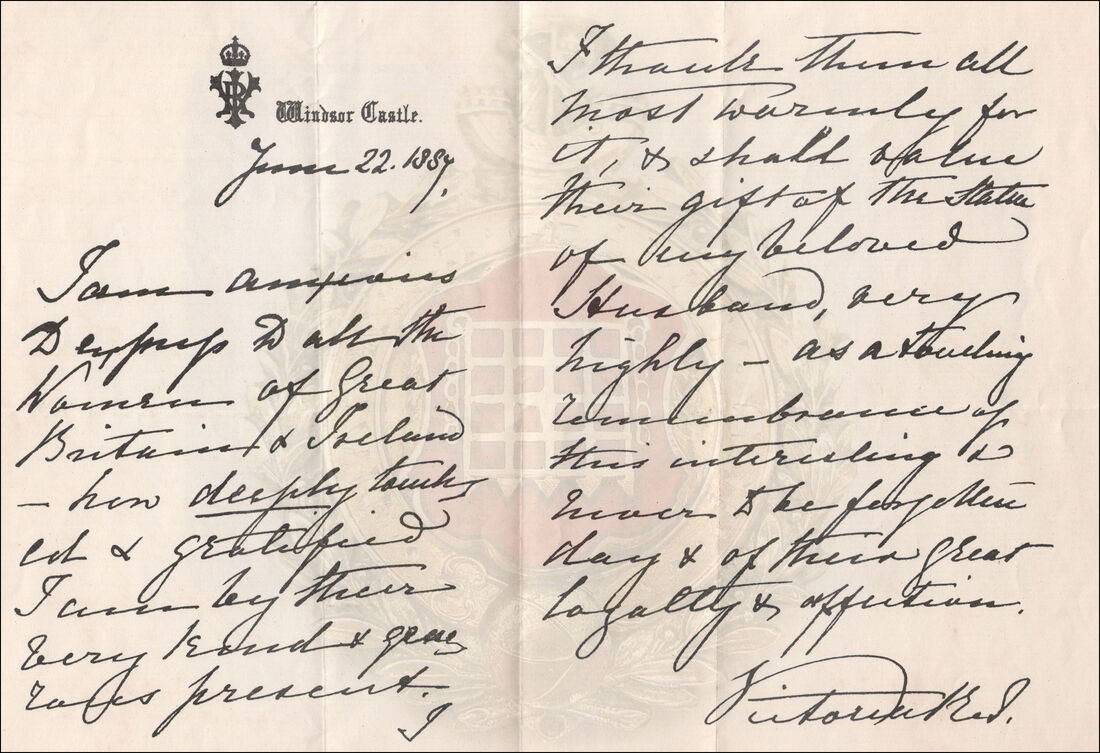 VRI
Windsor Castle.
June 22. 1887.
I am anxious
to express to all the
Women of Great
Britain & Ireland
– how deeply touch-
ed & gratified
I am by their
very kind & gene-
rous present.
I
I thank them all
most warmly for
it, & shall value
their gift of the statue
of my beloved
Husband, very
highly – as a touching
remembrance of
this interesting &
never to be forgotten
day & of their great
loyalty & affection.
Victoria R.I.